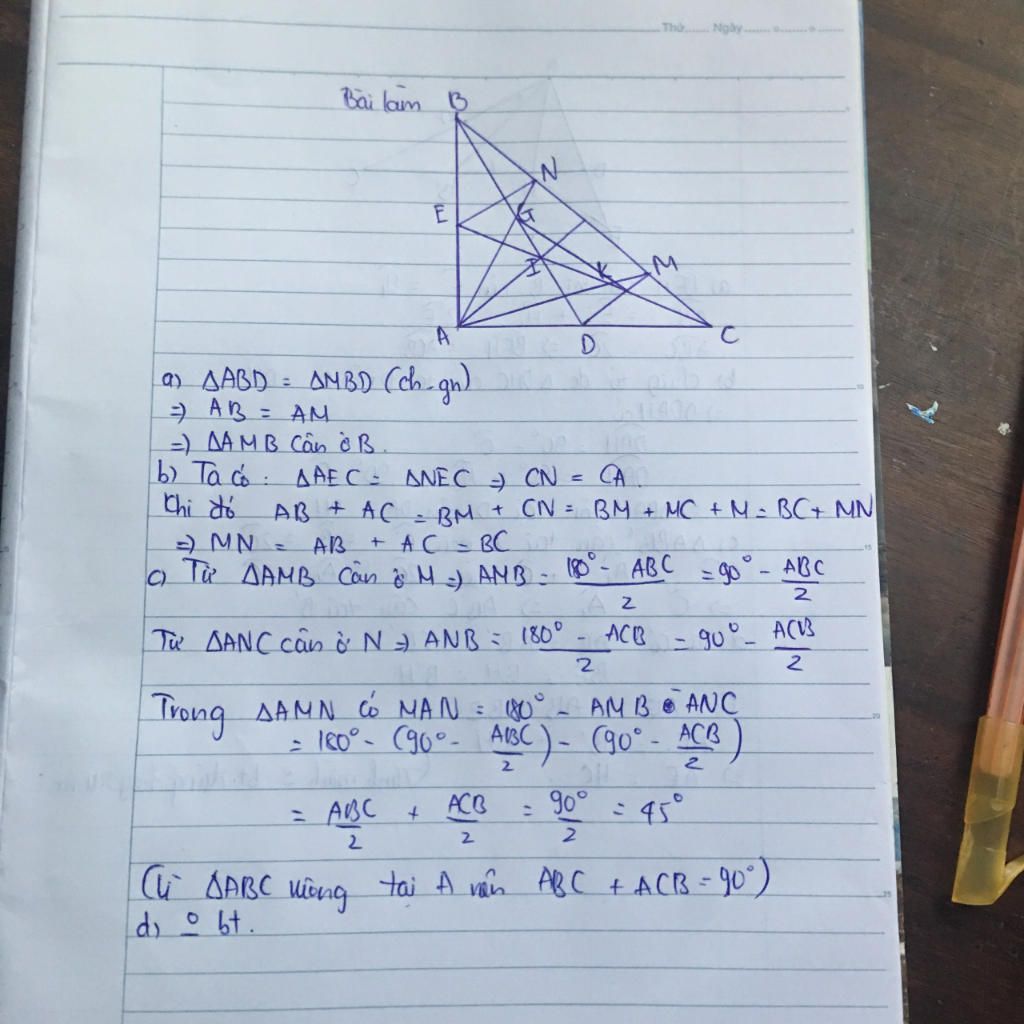 Thứ....... Ngày.......
Bài làm
B
N
E
G
I
K
M
A
D
C
a) ΔABD = ΔMBD (ch-gn)
=> AB = AM
=> ΔAMB cân ở B.
b) Ta có : ΔAEC = ΔNEC => CN = CA.
Khi đó AB + AC = BM + CN = BM + MC + M = BC + MN
=> MN = AB + AC = BC
c) Từ ΔAMB cân ở M => AMB = (180° - ABC)/2 = 90° - ABC/2
Từ ΔANC cân ở N => ANB = (180° - ACB)/2 = 90° - ACB/2
Trong ΔAMN có MAN = 180° - AMB - ANC
= 180° - (90° - ABC/2) - (90° - ACB/2)
= ABC/2 + ACB/2 = 90°/2 = 45°
(Vì ΔABC vuông tại A nên ABC + ACB = 90°)
d) o bt.